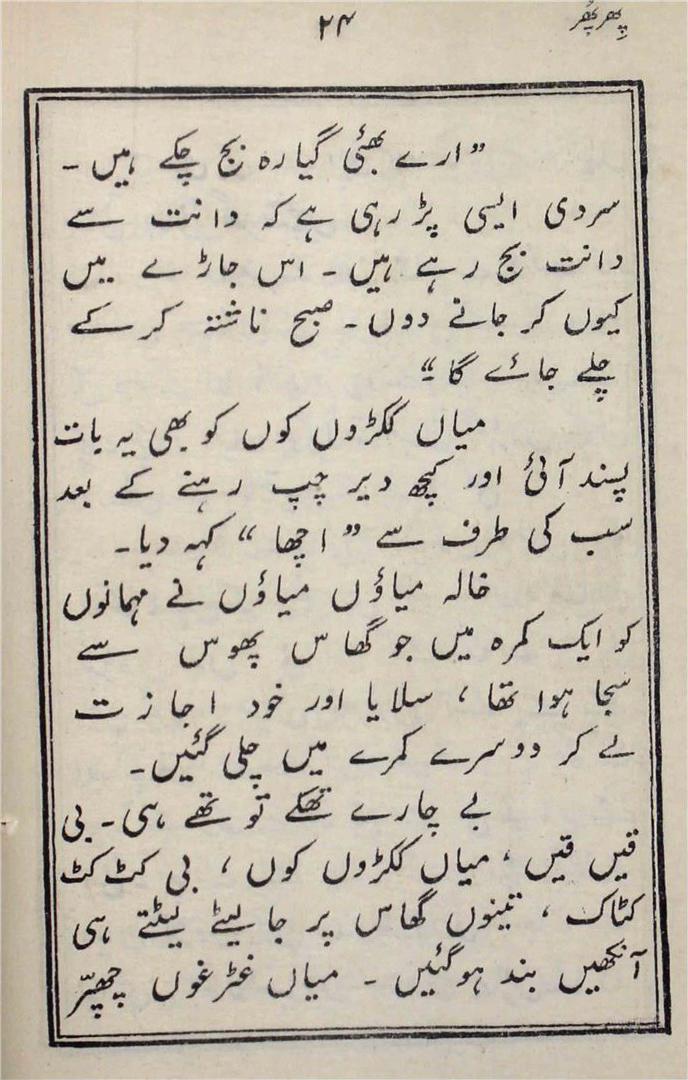 پھر پھُر
۲۴
”ارے بھئی گیارہ بج چکے ہیں ۔
سردی ایسی پڑ رہی ہے کہ دانت سے
دانت بج رہے ہیں ۔ اس جاڑے میں
کیوں کر جانے دوں ۔ صبح ناشتہ کر کے
چلے جائے گا ۔“
میاں ککڑوں کوں کو بھی یہ بات
پسند آئی اور کچھ دیر چپ رہنے کے بعد
سب کی طرف سے ”اچھا“ کہہ دیا ۔
خالہ میاؤں میاؤں نے مہمانوں
کو ایک کمرہ میں جو گھاس پھوس سے
سجا ہوا تھا ، سلایا اور خود اجازت
لے کر دوسرے کمرے میں چلی گئیں ۔
بے چارے تھکے تو تھے ہی ۔ بی
قیں قیں ، میاں ککڑوں کوں ، بی کٹ کٹ
کٹاک ، تینوں گھاس پر جا لیٹے لیٹتے ہی
آنکھیں بند ہوگئیں ۔ میاں غٹرغوں چھپّر